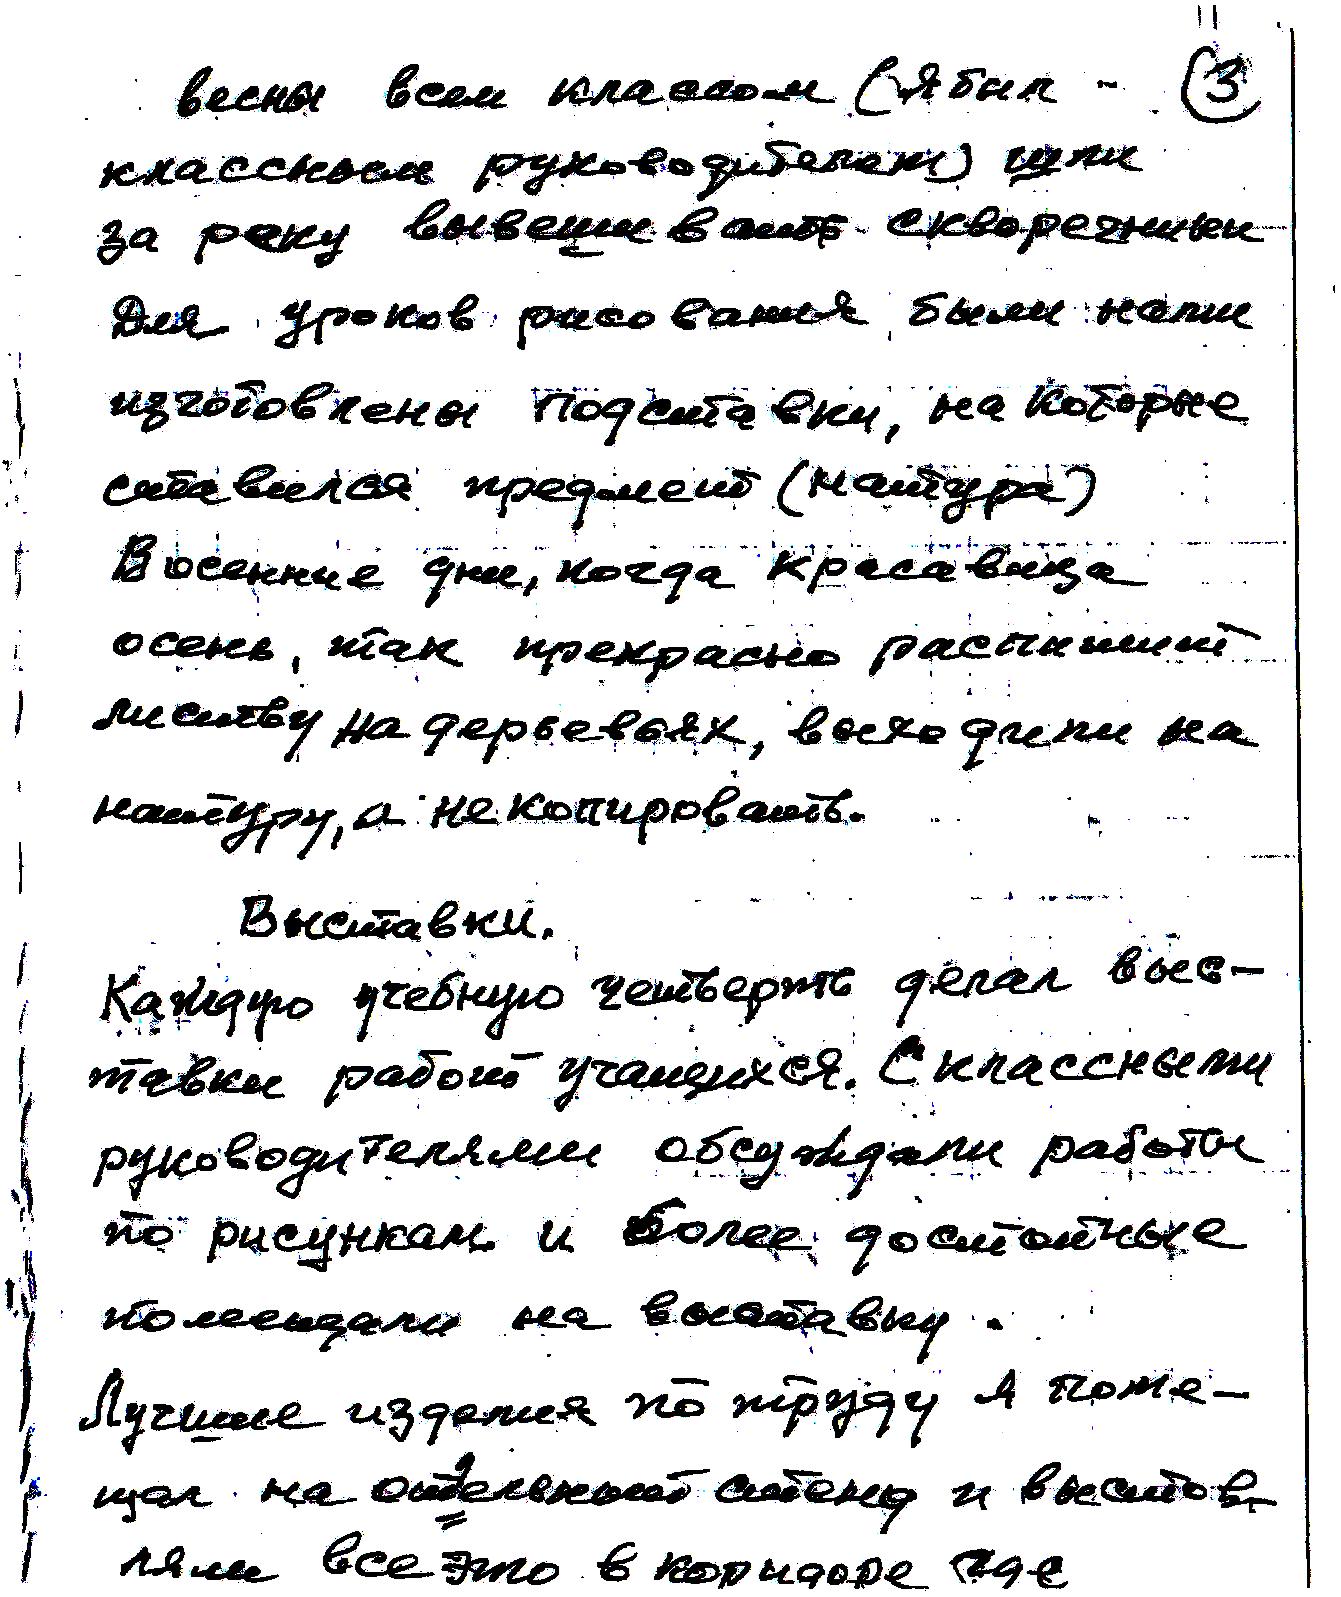 весны всем классом (я был - (3)
классным руководителем) шли
за реку вывешивать скворечники
Для уроков рисования были нами
изготовлены подставки, на которые
ставился предмет (натура)
В осенние дни, когда красавица
осень, так прекрасно распишит
листву на деревьях, выходили на
натуру, а не копировать.
Выставки.
Каждую учебную четверть делал выс-
тавки работ учащихся. С классными
руководителями обсуждали работы
по рисункам и более достойные
помещали на выставку.
Лучшие изделия по труду я поме-
щал на отдельный стенд и выстов-
ляли все это в коридоре где